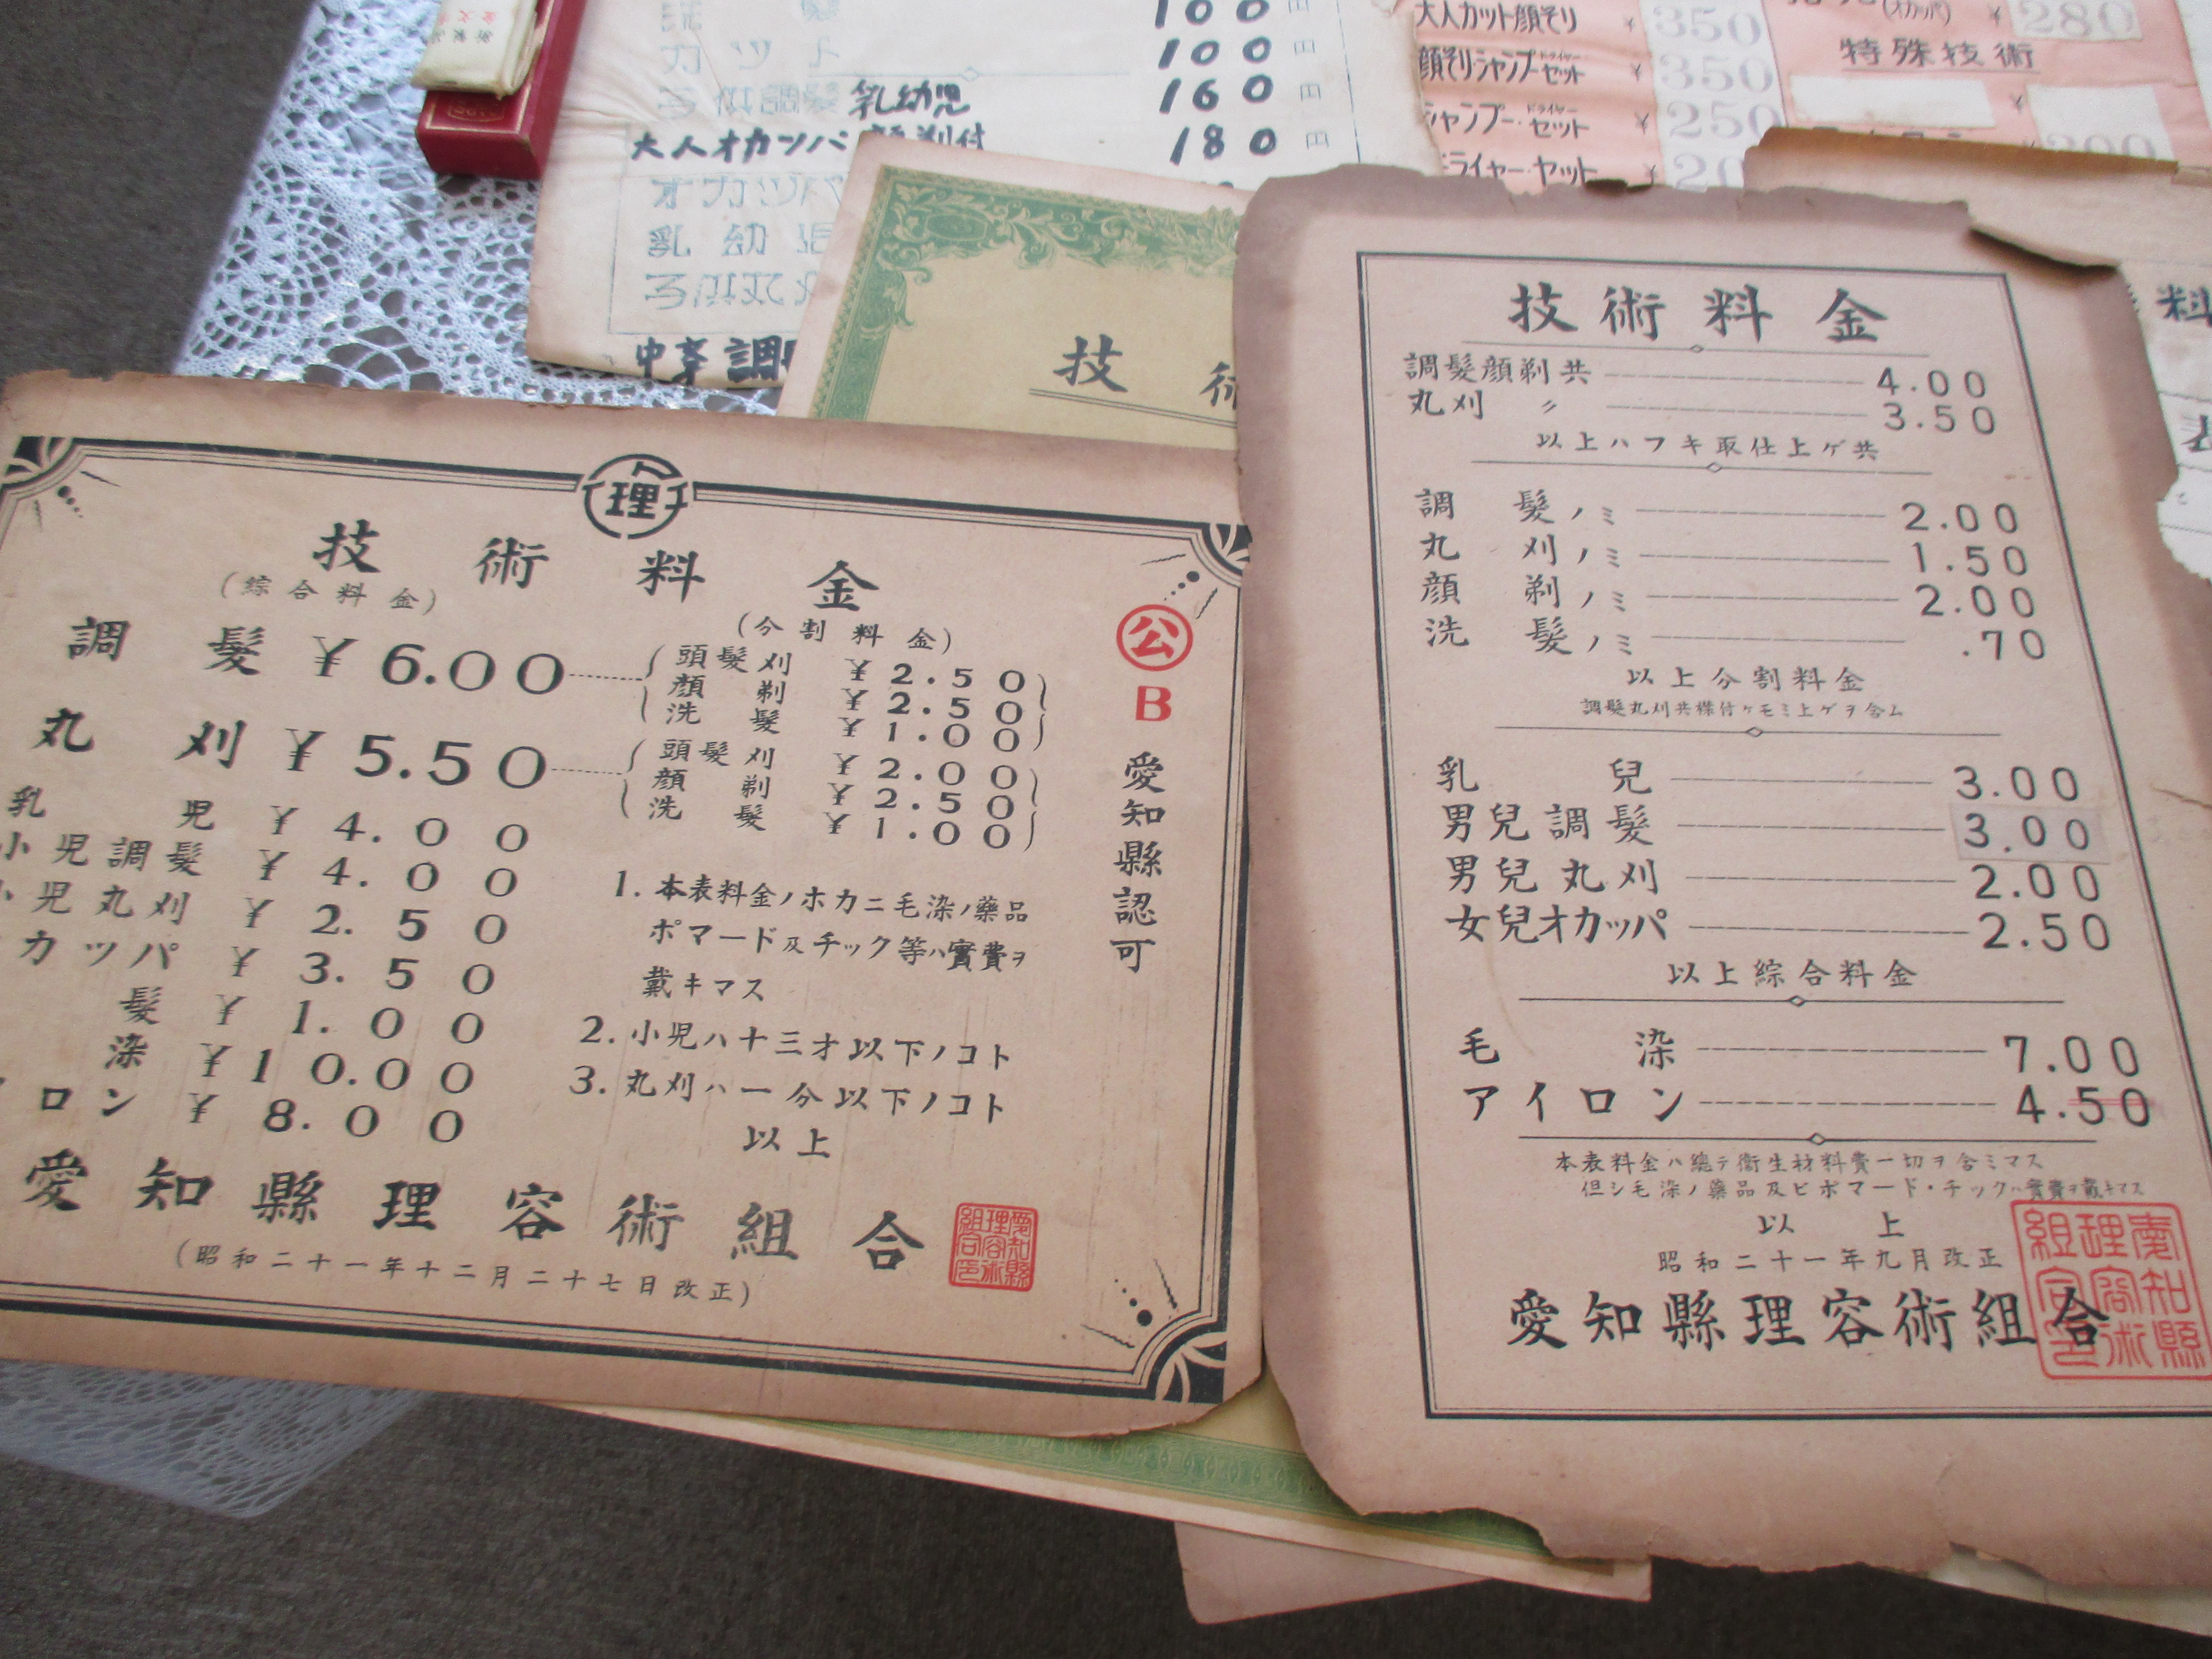 100
カット 100
子供調髪 乳幼児 160円
大人オカッパ 顔剃付 180円
オカッパ
乳幼児
調
大人カット顔そり ¥350
顔そりシャンプードライヤーセット ¥350
シャンプー・ドライヤーセット ¥250
ドライヤー・セット
(オカッパ) ¥280
特殊技術
¥
技術
料
理
技術料金
(綜合料金)
(分割料金)
調髪 ¥6.00
頭髪刈 ¥2.50
顔剃 ¥2.50
洗髪 ¥1.00
丸刈 ¥5.50
頭髪刈 ¥2.00
顔剃 ¥2.50
洗髪 ¥1.00
乳児 ¥4.00
小児調髪 ¥4.00
小児丸刈 ¥2.50
カッパ ¥3.50
髪 ¥1.00
染 ¥10.00
ロン ¥8.00
1. 本表料金ノホカニ毛染ノ藥品
ポマード及チック等ハ實費ヲ
戴キマス
2. 小児ハ十三才以下ノコト
3. 丸刈ハ一分以下ノコト
以上
公
B
愛知縣認可
愛知縣理容術組合
(昭和二十一年十二月二十七日改正)
愛知縣理容術組合印
技術料金
調髮顔剃共 4.00
丸刈 〃 3.50
以上ハフキ取仕上ゲ共
調髮ノミ 2.00
丸刈ノミ 1.50
顔剃ノミ 2.00
洗髮ノミ .70
以上分割料金
調髮丸刈共襟付ケモミ上ゲヲ含ム
乳兒 3.00
男兒調髮 3.00
男兒丸刈 2.00
女兒オカッパ 2.50
以上綜合料金
毛染 7.00
アイロン 4.50
本表料金ハ總テ衞生材料費一切ヲ含ミマス
但シ毛染ノ藥品及ビポマード・チックハ實費ヲ戴キマス
以上
昭和二十一年九月改正
愛知縣理容術組合
愛知縣理容術組合印